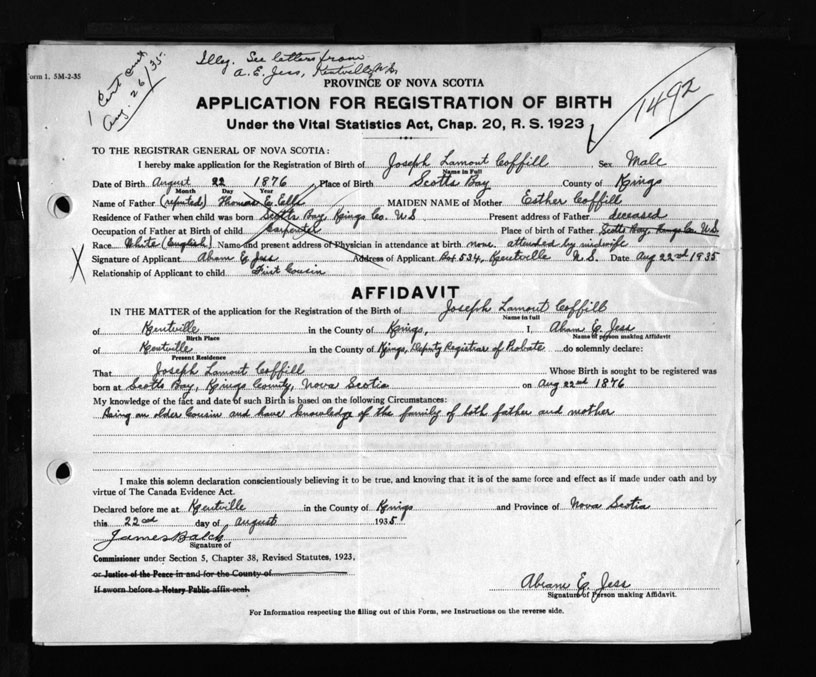 Form 1. 5M-2-35
1 Cert
Aug. 26/35.
Illeg. See letters from
A. E. Jess, Kentville, N.S.
1492
PROVINCE OF NOVA SCOTIA
APPLICATION FOR REGISTRATION OF BIRTH
Under the Vital Statistics Act, Chap. 20, R. S. 1923
TO THE REGISTRAR GENERAL OF NOVA SCOTIA:
I hereby make application for the Registration of Birth of Joseph Lamont Coffill Sex Male
Name in Full
Date of Birth August 22 1876 Place of Birth Scotts Bay County of Kings
Month Day Year
Name of Father (reputed) Thomas E. Ells MAIDEN NAME of Mother Esther Coffill
Residence of Father when child was born Scotts Bay, Kings Co. N S Present address of Father deceased
Occupation of Father at Birth of child Carpenter Place of birth of Father Scotts Bay, Kings Co. N.S.
Race White (English) Name and present address of Physician in attendance at birth none. attended by midwife
Signature of Applicant Abram E. Jess Address of Applicant Box 534, Kentville N.S. Date Aug 22nd 1935
Relationship of Applicant to child First Cousin
AFFIDAVIT
IN THE MATTER of the application for the Registration of the Birth of Joseph Lamont Coffill
Name in full
of Kentville in the County of Kings, I, Abram E. Jess
Birth Place Name of person making Affidavit
of Kentville in the County of Kings, Deputy Registrar of Probate do solemnly declare:
Present Residence
That Joseph Lamont Coffill Whose Birth is sought to be registered was
born at Scotts Bay, Kings County, Nova Scotia on Aug 22nd 1876
My knowledge of the fact and date of such Birth is based on the following Circumstances:
Being an older Cousin and have knowledge of the family of both father and mother
I make this solemn declaration conscientiously believing it to be true, and knowing that it is of the same force and effect as if made under oath and by
virtue of The Canada Evidence Act.
Declared before me at Kentville in the County of Kings and Province of Nova Scotia
this 22nd day of August 1935
James Balch
Signature of
Commissioner under Section 5, Chapter 38, Revised Statutes, 1923,
or Justice of the Peace in and for the County of
If sworn before a Notary Public affix seal.
Abram E. Jess
Signature of Person making Affidavit.
For Information respecting the filling out of this Form, see Instructions on the reverse side.